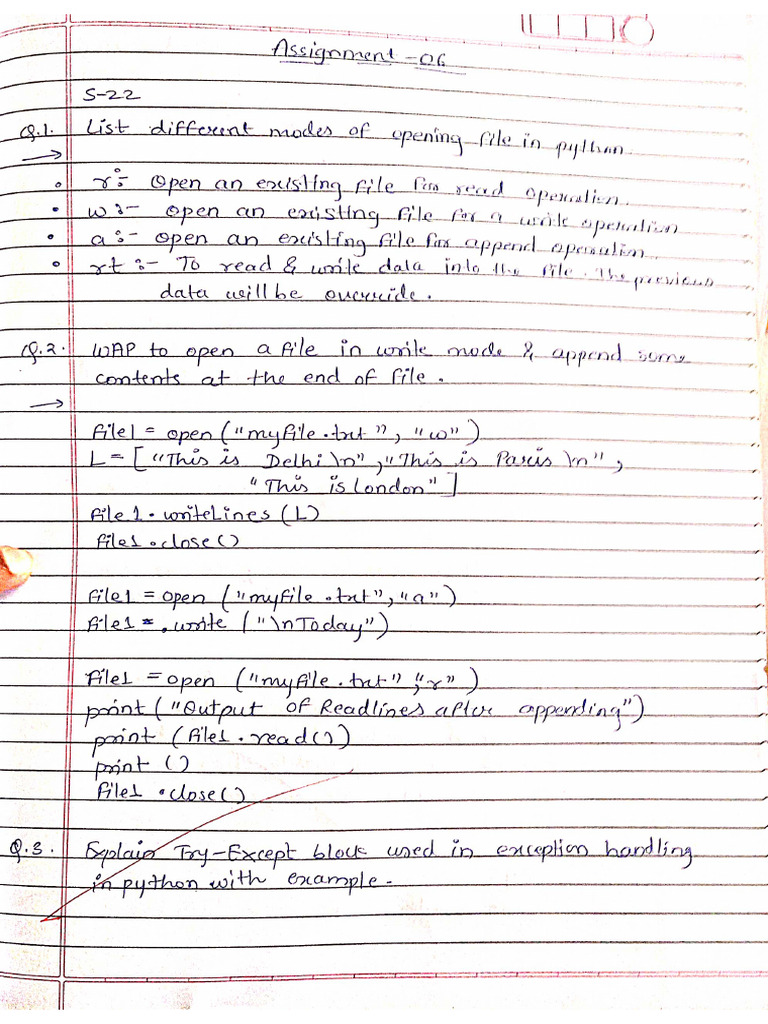 Assignment -06
S-22
Q.1. List different modes of opening file in python.
→
• r :- Open an existing file for read operation.
• w :- open an existing file for a write operation
• a :- open an existing file for append operation.
• rt :- To read & write data into the file. The previous
data will be override.
Q.2. WAP to open a file in write mode & append some
contents at the end of file.
→
file1 = open ("myfile.txt", "w")
L = ["This is Delhi \n", "This is Paris \n",
"This is London"]
file1.writeLines (L)
file1.close()
file1 = open ("myfile.txt", "a")
file1 .write ("\nToday")
file1 = open ("myfile.txt", "r")
print ("Output of Readlines after appending")
print (file1.read())
print ()
file1.close()
Q.3. Explain Try-Except block used in exception handling
in python with example.